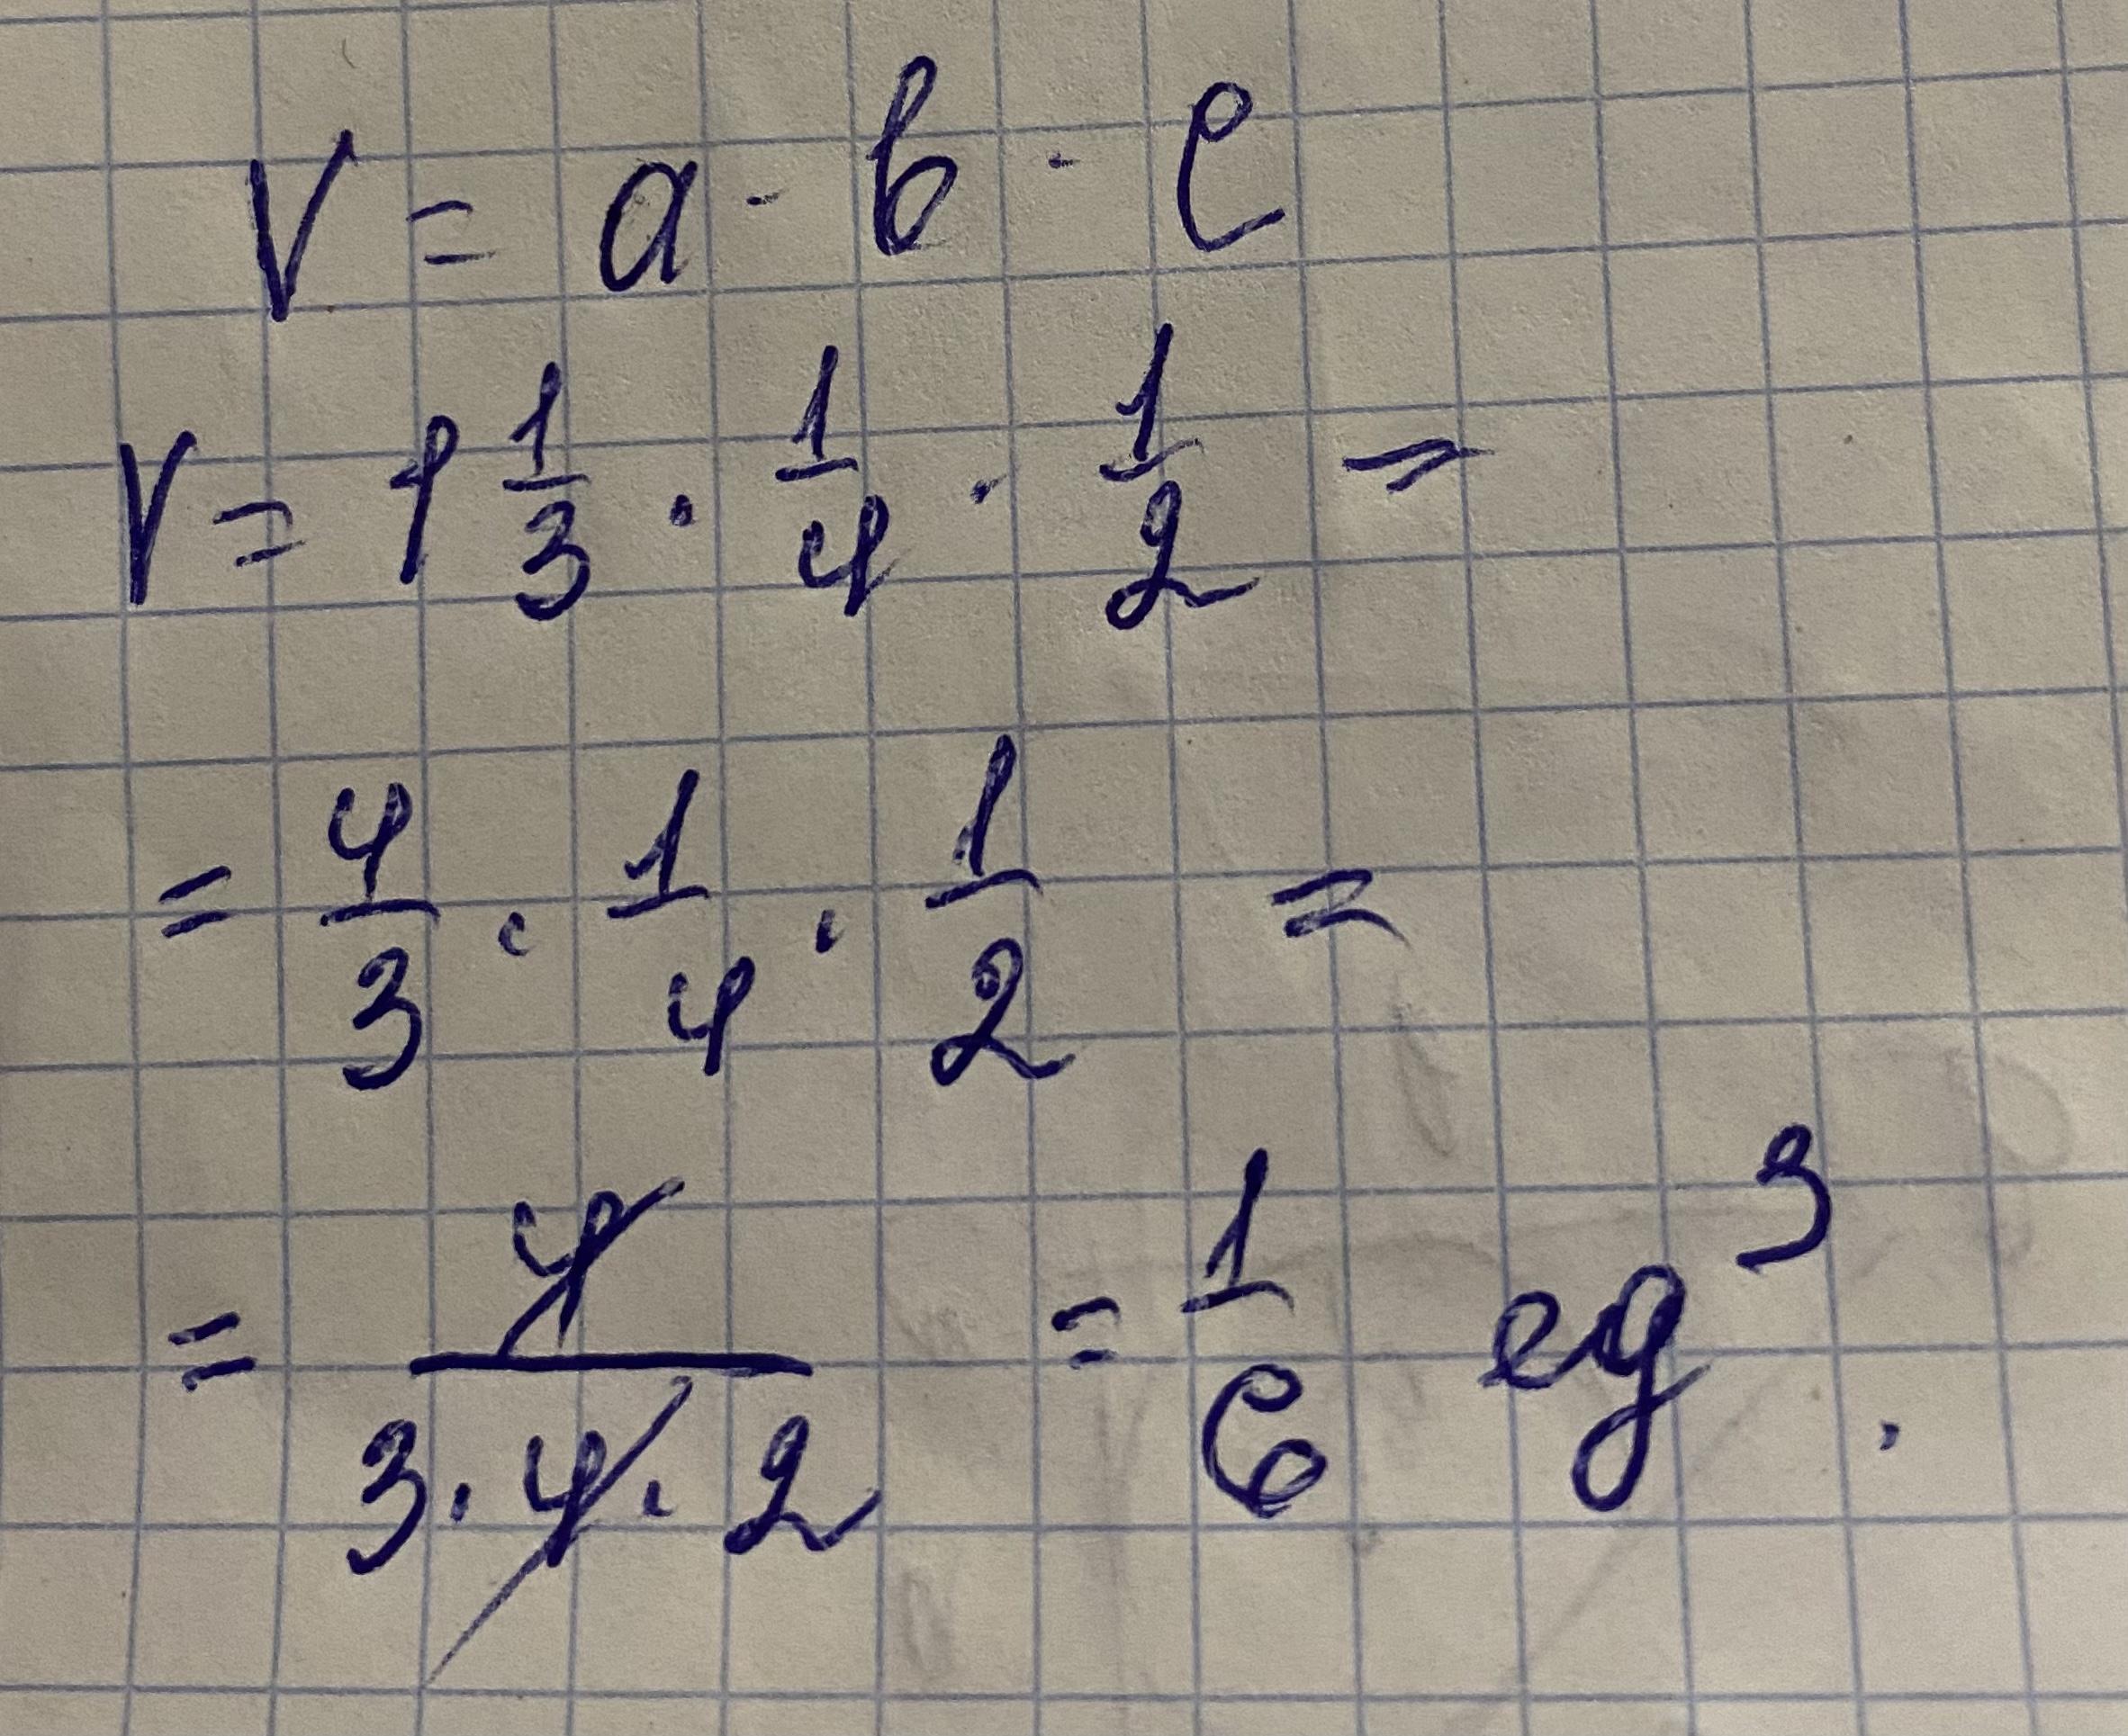 V = a · b · c
V = 1 1/3 · 1/4 · 1/2 =
= 4/3 · 1/4 · 1/2 =
= 4/(3 · 4 · 2) = 1/6 eg³.